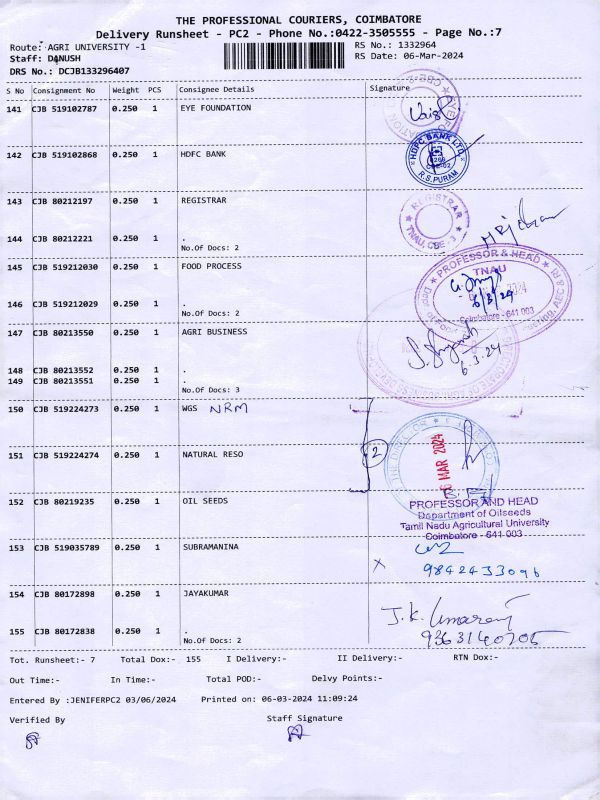 THE PROFESSIONAL COURIERS, COIMBATORE
Delivery Runsheet - PC2 - Phone No.:0422-3505555 - Page No.:7
Route: AGRI UNIVERSITY -1
RS No.: 1332964
Staff: DANUSH
RS Date: 06-Mar-2024
DRS No.: DCJB133296407
S No Consignment No Weight PCS Consignee Details Signature
141 CJB 519102787 0.250 1 EYE FOUNDATION
142 CJB 519102868 0.250 1 HDFC BANK
HDFC BANK LTD
R.S.PURAM
143 CJB 80212197 0.250 1 REGISTRAR
REGISTRAR
TNAU, CBE - 3
144 CJB 80212221 0.250 1 .
No.Of Docs: 2
145 CJB 519212030 0.250 1 FOOD PROCESS
PROFESSOR & HEAD
TNAU
6/3/24
Coimbatore - 641 003
146 CJB 519212029 0.250 1 .
No.Of Docs: 2
147 CJB 80213550 0.250 1 AGRI BUSINESS
6.3.24
148 CJB 80213552 0.250 1 .
149 CJB 80213551 0.250 1 .
No.Of Docs: 3
150 CJB 519224273 0.250 1 WGS NRM
THE DIRECTOR
MAR 2024
2
151 CJB 519224274 0.250 1 NATURAL RESO
152 CJB 80219235 0.250 1 OIL SEEDS
PROFESSOR AND HEAD
Department of Oilseeds
Tamil Nadu Agricultural University
Coimbatore - 641 003
153 CJB 519035789 0.250 1 SUBRAMANINA
X 9842433096
154 CJB 80172898 0.250 1 JAYAKUMAR
155 CJB 80172838 0.250 1 .
No.Of Docs: 2
Tot. Runsheet:- 7 Total Dox:- 155 I Delivery:- II Delivery:- RTN Dox:-
Out Time:- In Time:- Total POD:- Delvy Points:-
Entered By :JENIFERPC2 03/06/2024 Printed on: 06-03-2024 11:09:24
Verified By Staff Signature